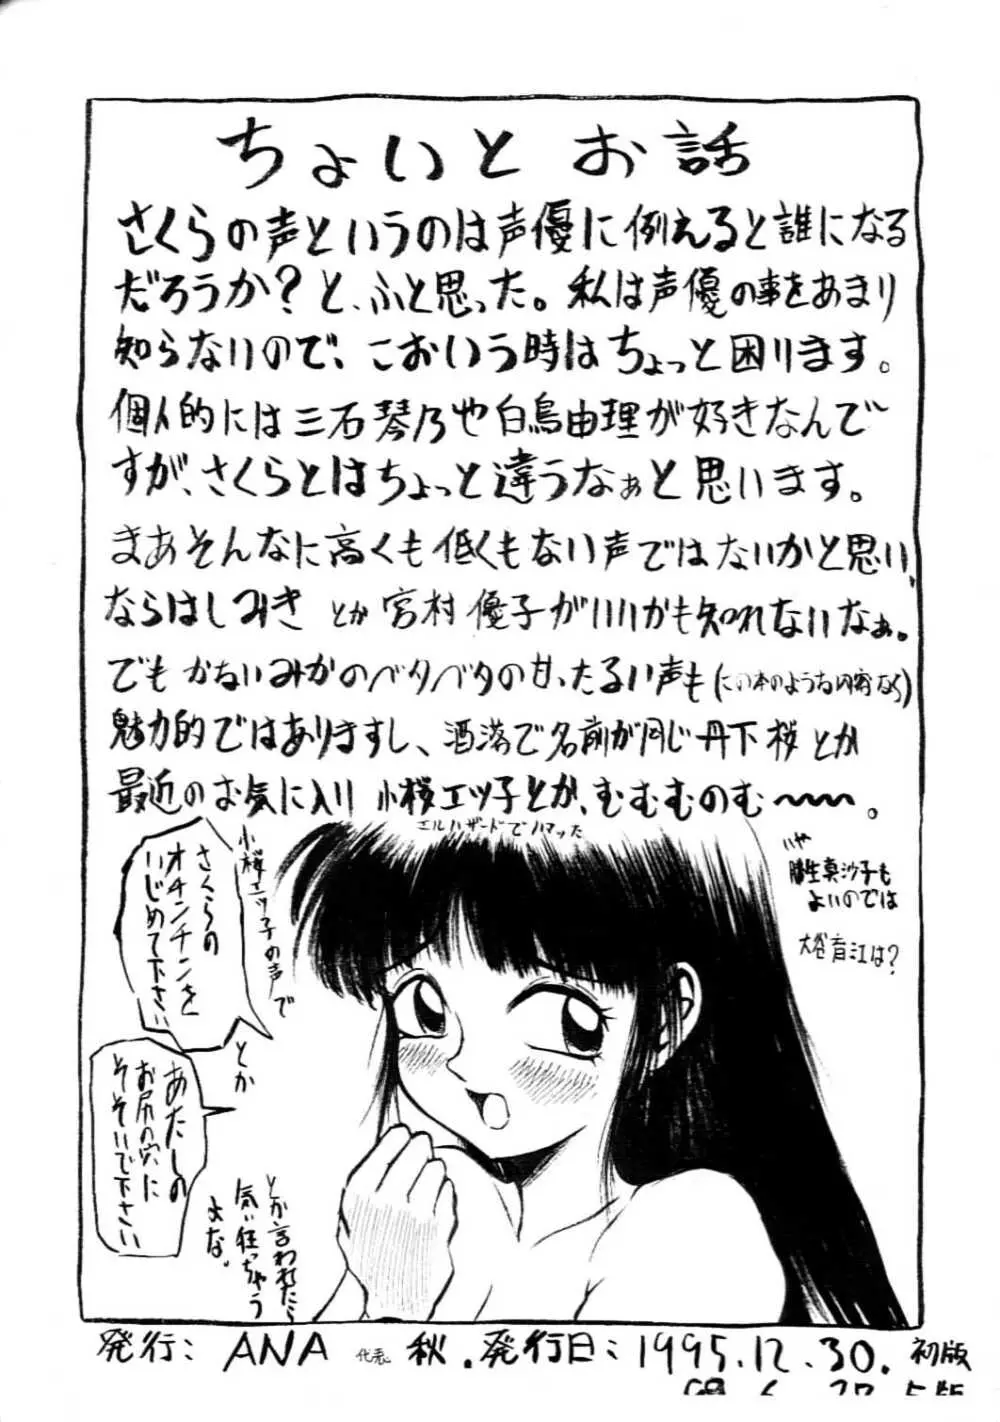 ちょいとお話
さくらの声というのは声優に例えると誰になる
だろうか？と、ふと思った。私は声優の事をあまり
知らないので、こおいう時はちょっと困ります。
個人的には三石琴乃や白鳥由理が好きなんで
すが、さくらとはちょっと違うなぁと思います。
まあそんなに高くも低くもない声ではないかと思い、
ならはしみき とか 宮村優子がいいかも知れないなぁ。
でも かないみかのベタベタの甘ったるい声も(この本のような内容なら)
魅力的ではありますし、洒落で名前が同じ丹下桜とか
最近のお気に入り 小桜エツ子とか、むむむのむ〜〜〜。
エルハザードでハマッた
いや
勝生真沙子も
よいのでは
大谷育江は？
小桜エツ子の声で
さくらの
オチンチンを
いじめて下さい
とか
あたしの
お尻の穴に
そそいで下さい
とか言われたら
気い狂っちゃう
よな。
発行：ANA 代表 秋. 発行日：1995.12.30. 初版